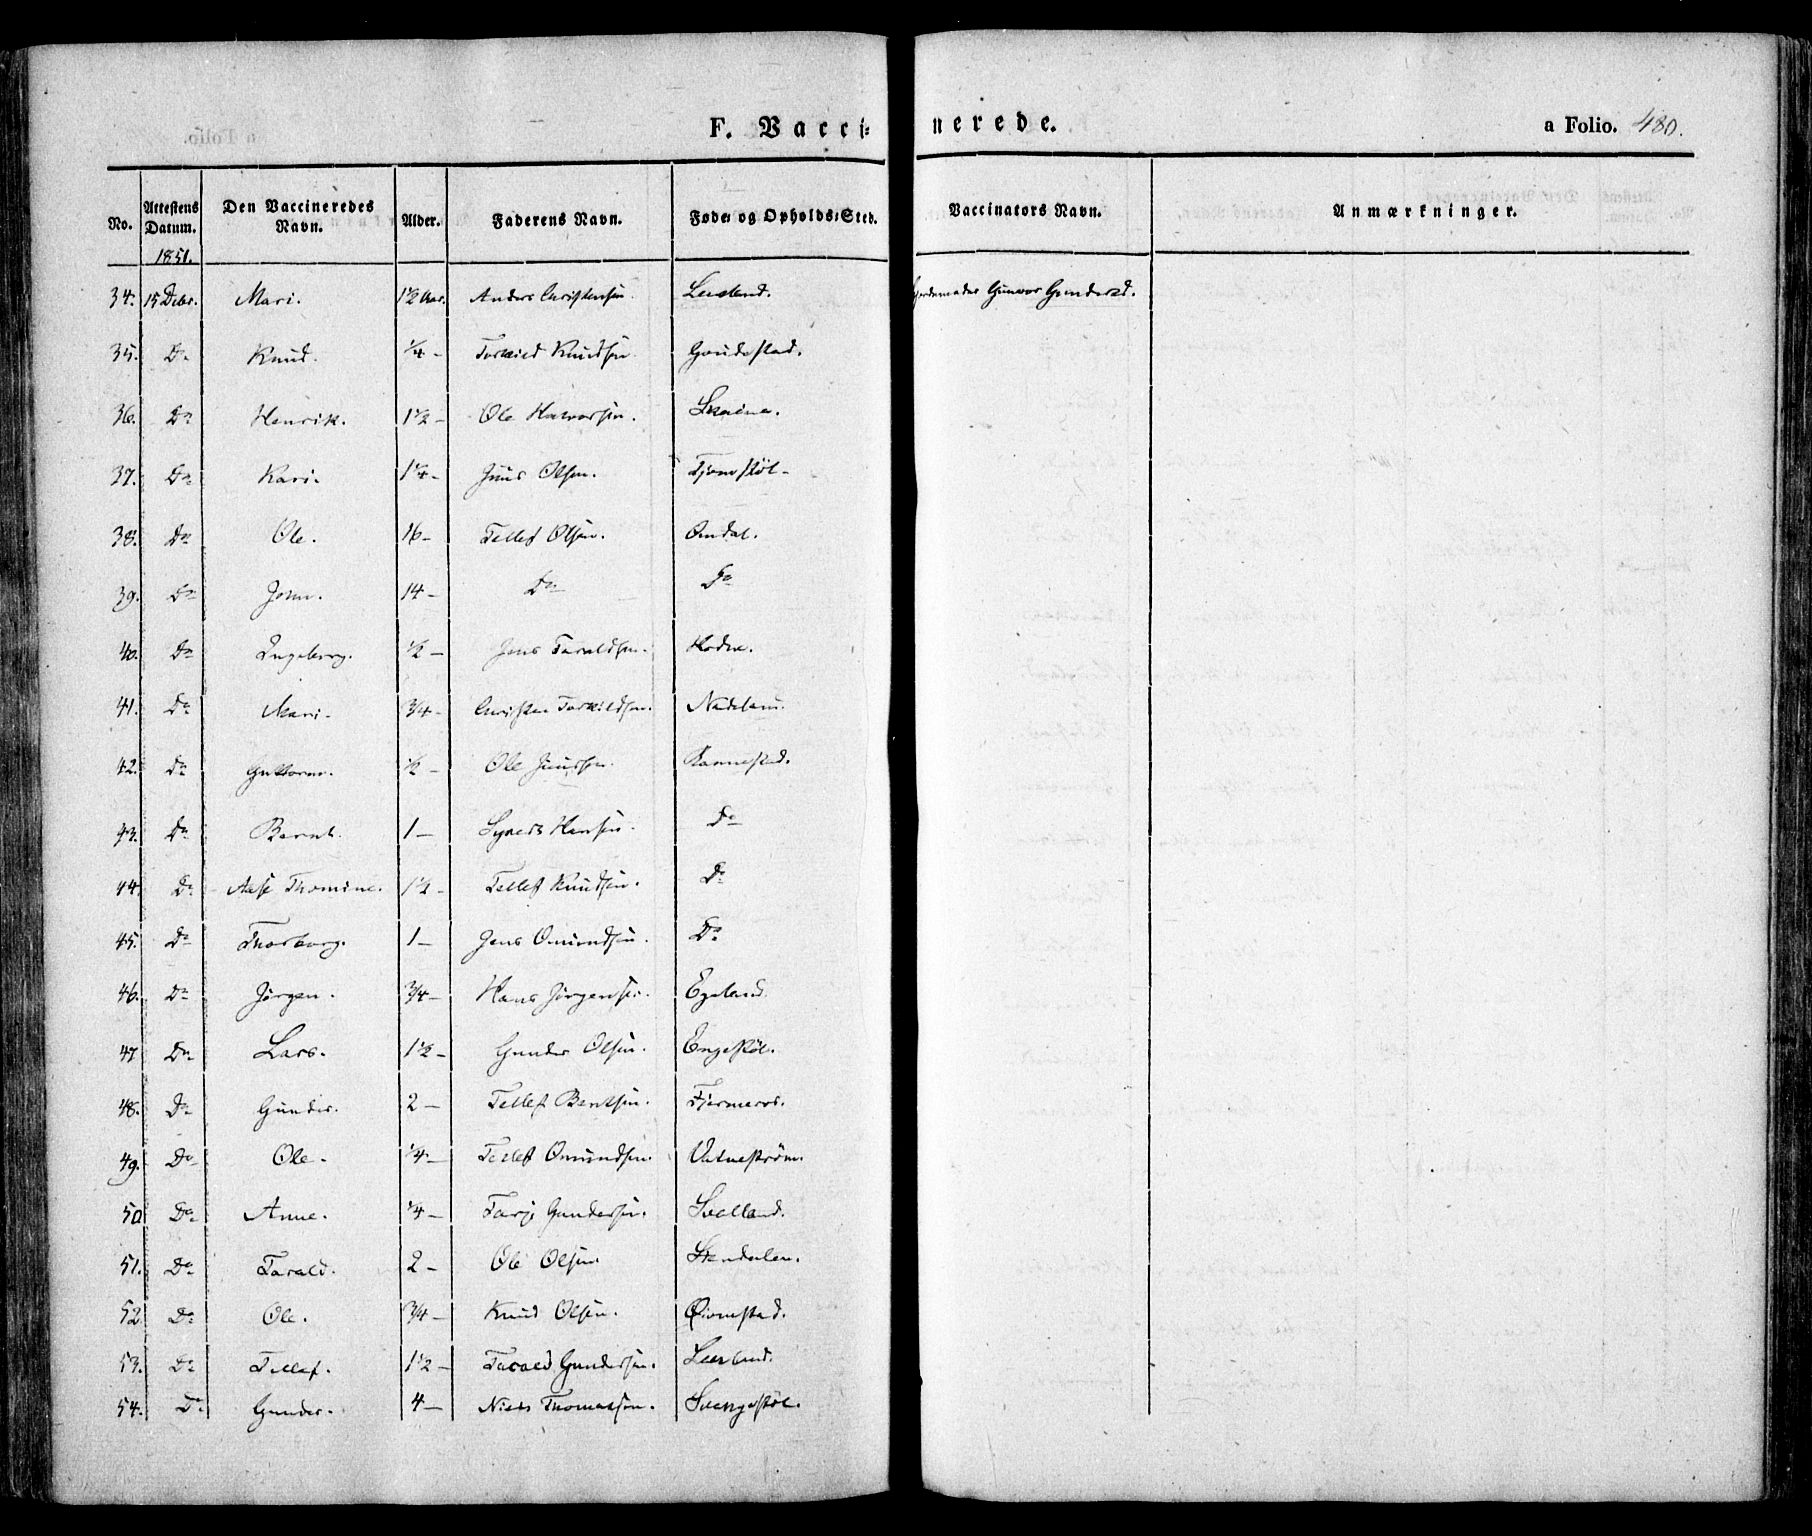 F. Vacci= nerede. a Folio. 480.
No. Attestens Datum. Den Vaccineredes Navn. Alder. Faderens Navn. Føde= og Opholds=Sted. Vaccinators Navn. Anmærkninger.
1851.
34. 15 Debr. Mari. 1 1/2 Aar. Anders Christensen Gunvor Gundersd.
35. Do Knud. 1/4 – Torkild Knudsen Goudestad.
36. Do Henrik. 1 1/2 – Ole Halvorsen.
37. Do Kari. 1 1/4 – Juus Olsen. Tjomstöl –
38. Do Ole. 16 – Tellef Olsen. Omdal.
39. Do John. 14 – Do Do
40. Do Ingeborg. 1/2 – Jens Taraldsen. Hodne.
41. Do Mari. 3/4 – Christen Torkildsen.
42. Do Guttorm. 1/2 – Ole Juussen. Rannestad.
43. Do Bernt. 1 – Syvert Hansen. Do
44. Do Aase Thomine. 1 1/2 – Tellef Knudsen. Do
45. Do Thorborg. 1 – Jens Omundsen. Do
46. Do Jörgen. 3/4 – Hans Jörgensen. Egeland.
47. Do Lars. 1 1/2 – Gunder Olsen. Engestöl.
48. Do Gunder. 2 – Tellef Bentsen. Fjermeros.
49. Do Ole. 1/4 – Tellef Omundsen. Vatneström.
50. Do Anne. 1/4 – Tarje Gundersen. Svalland.
51. Do Tarald. 2 – Ole Olsen.
52. Do Ole. 3/4 – Knud Olsen. Øiomstad.
53. Do Tellef. 1 1/2 – Tarald Gundersen.
54. Do Gunder. 4 – Niels Thomassen.